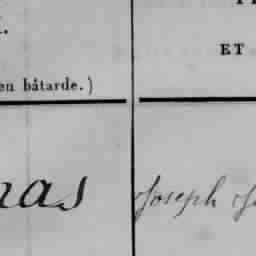 ET
en bâtarde.)
nas Joseph